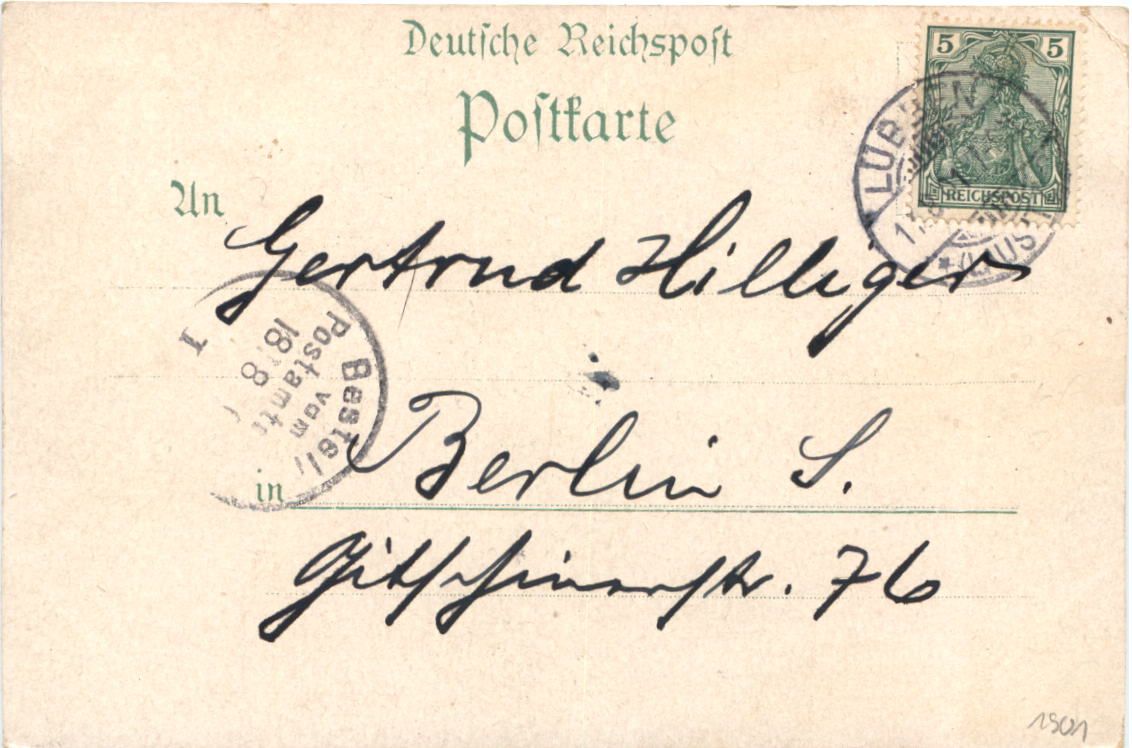 Deutsche Reichspost
Postkarte
5 5
REICHSPOST
LÜBBEN
An
Gertrud Hilliger
Bestell
vom
Postamte
18 8
1
in Berlin S.
Gitschinerstr. 76
1901